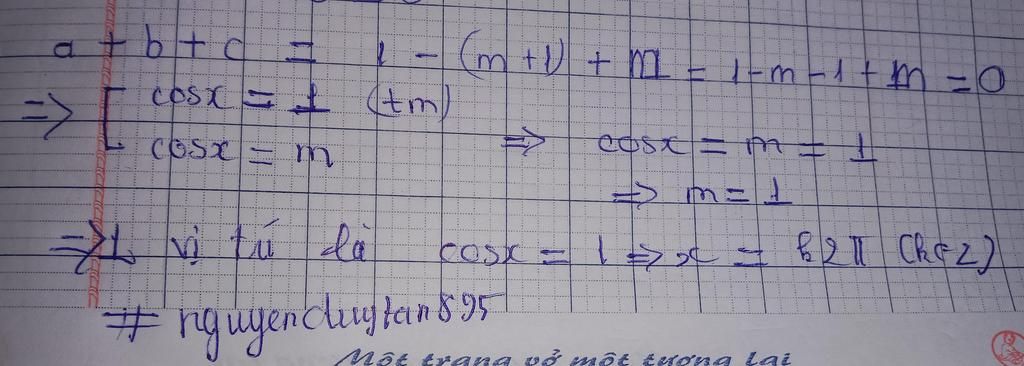 a + b + c = 1 - (m+1) + m = 1-m-1+m = 0
=> [ cosx = 1 (tm)
cosx = m => cosx = m = 1
=> m = 1
=> 1 vị trí là cosx = 1 => x = k2π (k∈Z)
# nguyenduytan895
Một trang vở một tương lai